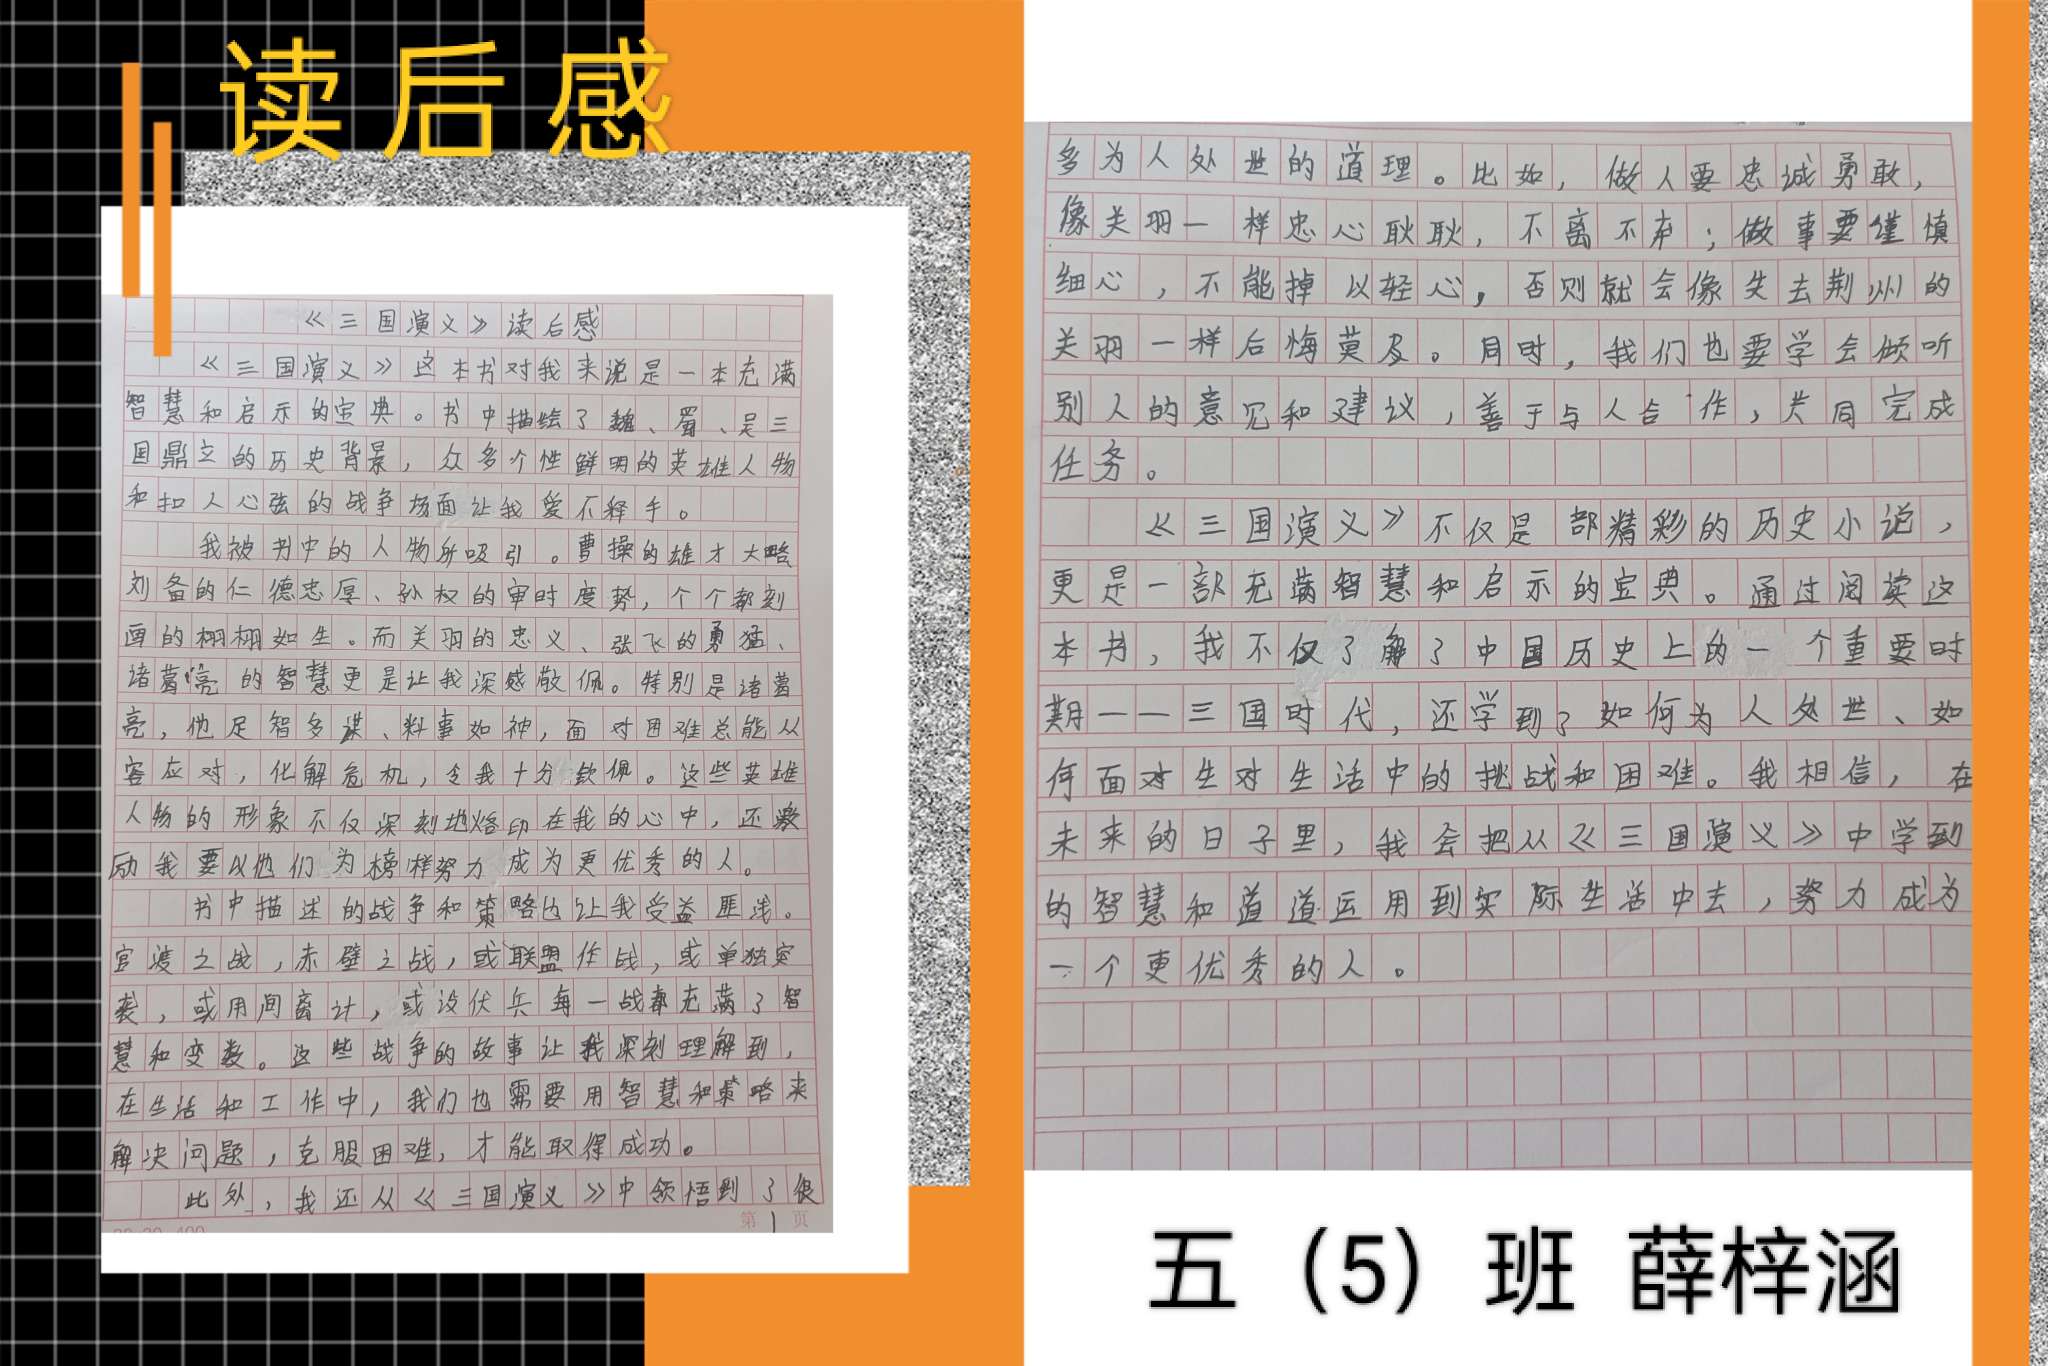 读后感
《三国演义》读后感
《三国演义》这本书对我来说是一本充满
智慧和启示的宝典。书中描绘了魏、蜀、吴三
国鼎立的历史背景，众多个性鲜明的英雄人物
和扣人心弦的战争场面让我爱不释手。
我被书中的人物所吸引。曹操的雄才大略
刘备的仁德忠厚、孙权的审时度势，个个都刻
画的栩栩如生。而关羽的忠义、张飞的勇猛、
诸葛亮的智慧更是让我深感敬佩。特别是诸葛
亮，他足智多谋、料事如神，面对困难总能从
容应对，化解危机，令我十分钦佩。这些英雄
人物的形象不仅深刻地烙印在我的心中，还激
励我要以他们为榜样努力成为更优秀的人。
书中描述的战争和策略也让我受益匪浅。
官渡之战，赤壁之战，或联盟作战，或单独突
袭，或用间离计，或设伏兵每一战都充满了智
慧和变数。这些战争的故事让我深刻理解到，
在生活和工作中，我们也需要用智慧和策略来
解决问题，克服困难，才能取得成功。
此外，我还从《三国演义》中领悟到了很
第1页
多为人处世的道理。比如，做人要忠诚勇敢，
像关羽一样忠心耿耿，不离不弃；做事要谨慎
细心，不能掉以轻心，否则就会像失去荆州的
关羽一样后悔莫及。同时，我们也要学会倾听
别人的意见和建议，善于与人合作，共同完成
任务。
《三国演义》不仅是部精彩的历史小说，
更是一部充满智慧和启示的宝典。通过阅读这
本书，我不仅了解了中国历史上的一个重要时
期——三国时代，还学到了如何为人处世、如
何面对生对生活中的挑战和困难。我相信，在
未来的日子里，我会把从《三国演义》中学到
的智慧和道道运用到实际生活中去，努力成为
一个更优秀的人。
五（5）班 薛梓涵